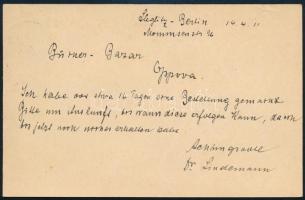 Steglitz - Berlin 14.4.11
Mommsenstr
Bücher - Bazar
Ich habe vor etwa 14 Tagen eine Bestellung gemacht
Bitte um Auskunft, bis wann diese erfolgen kann, da ich
bis jetzt noch erhalten habe
Achtungsvoll
Dr. Lindemann